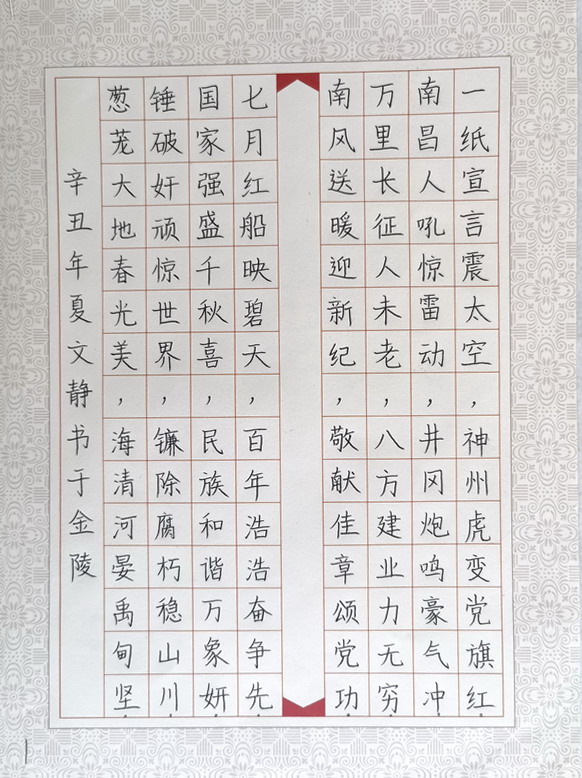 一纸宣言震太空，神州虎变党旗红.
南昌人吼惊雷动，井冈炮鸣豪气冲.
万里长征人未老，八方建业力无穷.
南风送暖迎新纪，敬献佳章颂党功.
七月红船映碧天，百年浩浩奋争先.
国家强盛千秋喜，民族和谐万象妍.
锤破奸顽惊世界，镰除腐朽稳山川.
葱茏大地春光美，海清河晏禹甸坚.
辛丑年夏文静书于金陵